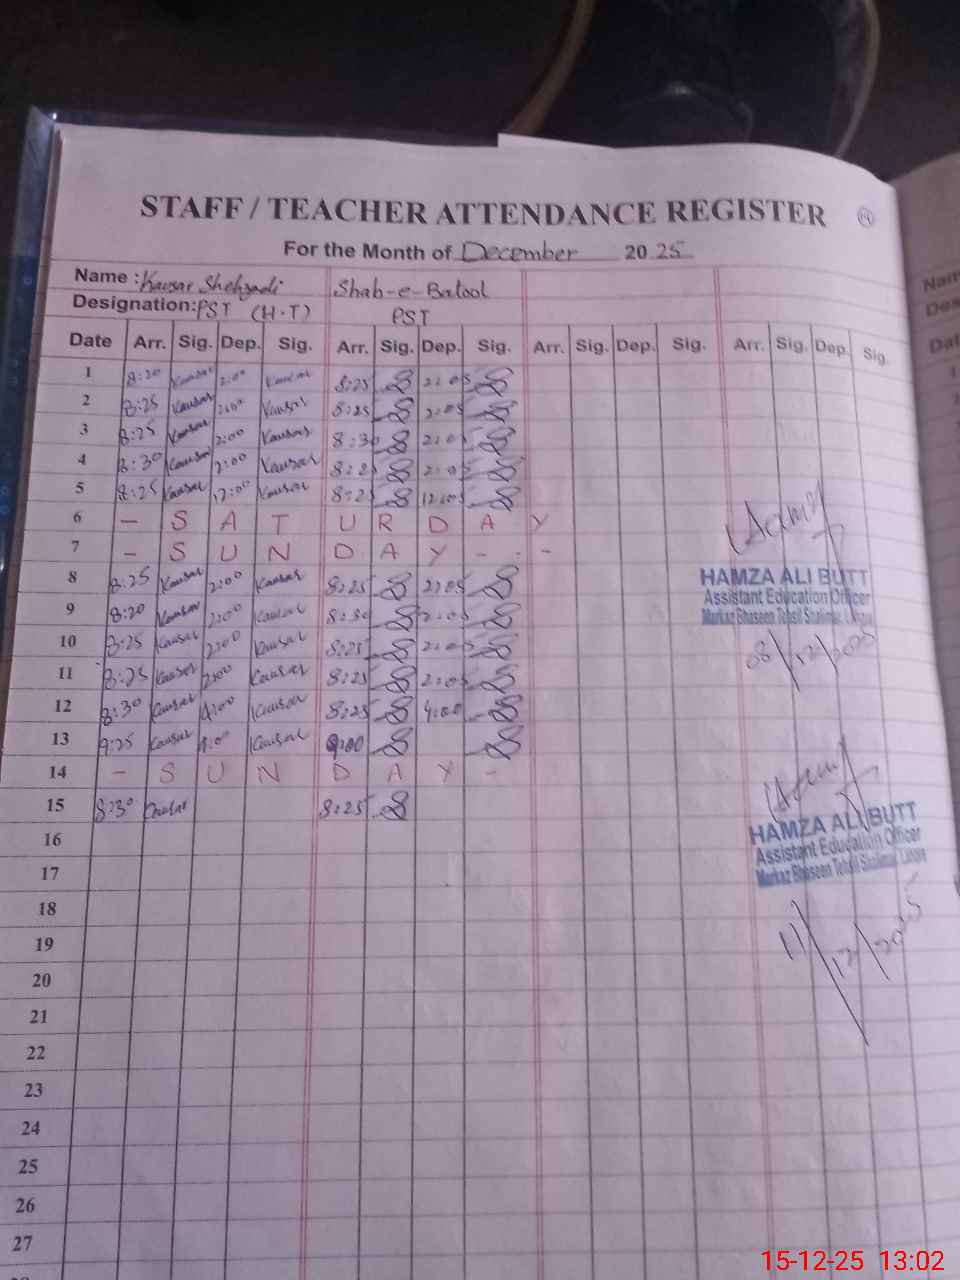 STAFF / TEACHER ATTENDANCE REGISTER
For the Month of December 2025
Name : Kausar Shehzadi Shab-e-Batool
Designation: PST (H.T) PST
Date Arr. Sig. Dep. Sig. Arr. Sig. Dep. Sig. Arr. Sig. Dep. Sig. Arr. Sig. Dep. Sig.
1 8:20 Kausar 2:00 Kausar 8:25 2:05
2 8:25 Kausar 2:00 Kausar 8:25 2:05
3 8:25 Kausar 2:00 Kausar 8:30 2:05
4 8:30 Kausar 2:00 Kausar 8:25 2:05
5 8:25 Kausar 12:00 Kausar 8:25 12:05
6 - S A T U R D A Y
7 - S U N D A Y - - -
8 8:25 Kausar 2:00 Kausar 8:25 2:05
9 8:20 Kausar 2:00 Kausar 8:30 2:05
10 8:25 Kausar 2:00 Kausar 8:25 2:05
11 8:25 Kausar 2:00 Kausar 8:25 2:05
12 8:30 Kausar 4:00 Kausar 8:25 4:00
13 9:25 Kausar Kausar 9:00
14 - S U N D A Y -
15 8:30 Kausar 8:25
16
17
18
19
20
21
22
23
24
25
26
27
Hamza
HAMZA ALI BUTT
Assistant Education Officer
Markaz Bhaseen Tehsil Shalimar, Lahore
08/12/2025
Hamza
HAMZA ALI BUTT
Assistant Education Officer
Markaz Bhaseen Tehsil Shalimar, Lahore
11/12/2025
Nam
Des
Dat
15-12-25 13:02